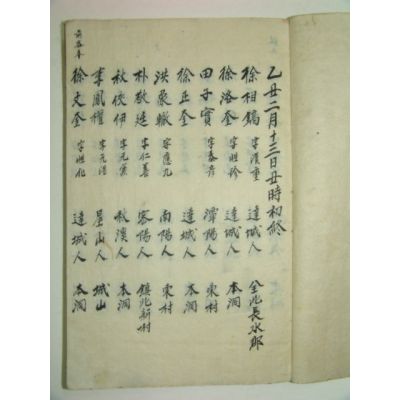 乙丑二月十三日丑時初終
徐相鎬 字漢重 達城人 全北長水郡
徐洛奎 字 達城人 本洞
田子實 字春彦 潭陽人 東村
徐正奎 達城人 本洞
洪象轍 字應九 南陽人 東村
朴敬廷 字仁善 密陽人 鎭北新村
秋俊伊 字元 秋溪人 本洞
李鳳權 字元 星山人 城山
徐文奎 字 達城人 本洞